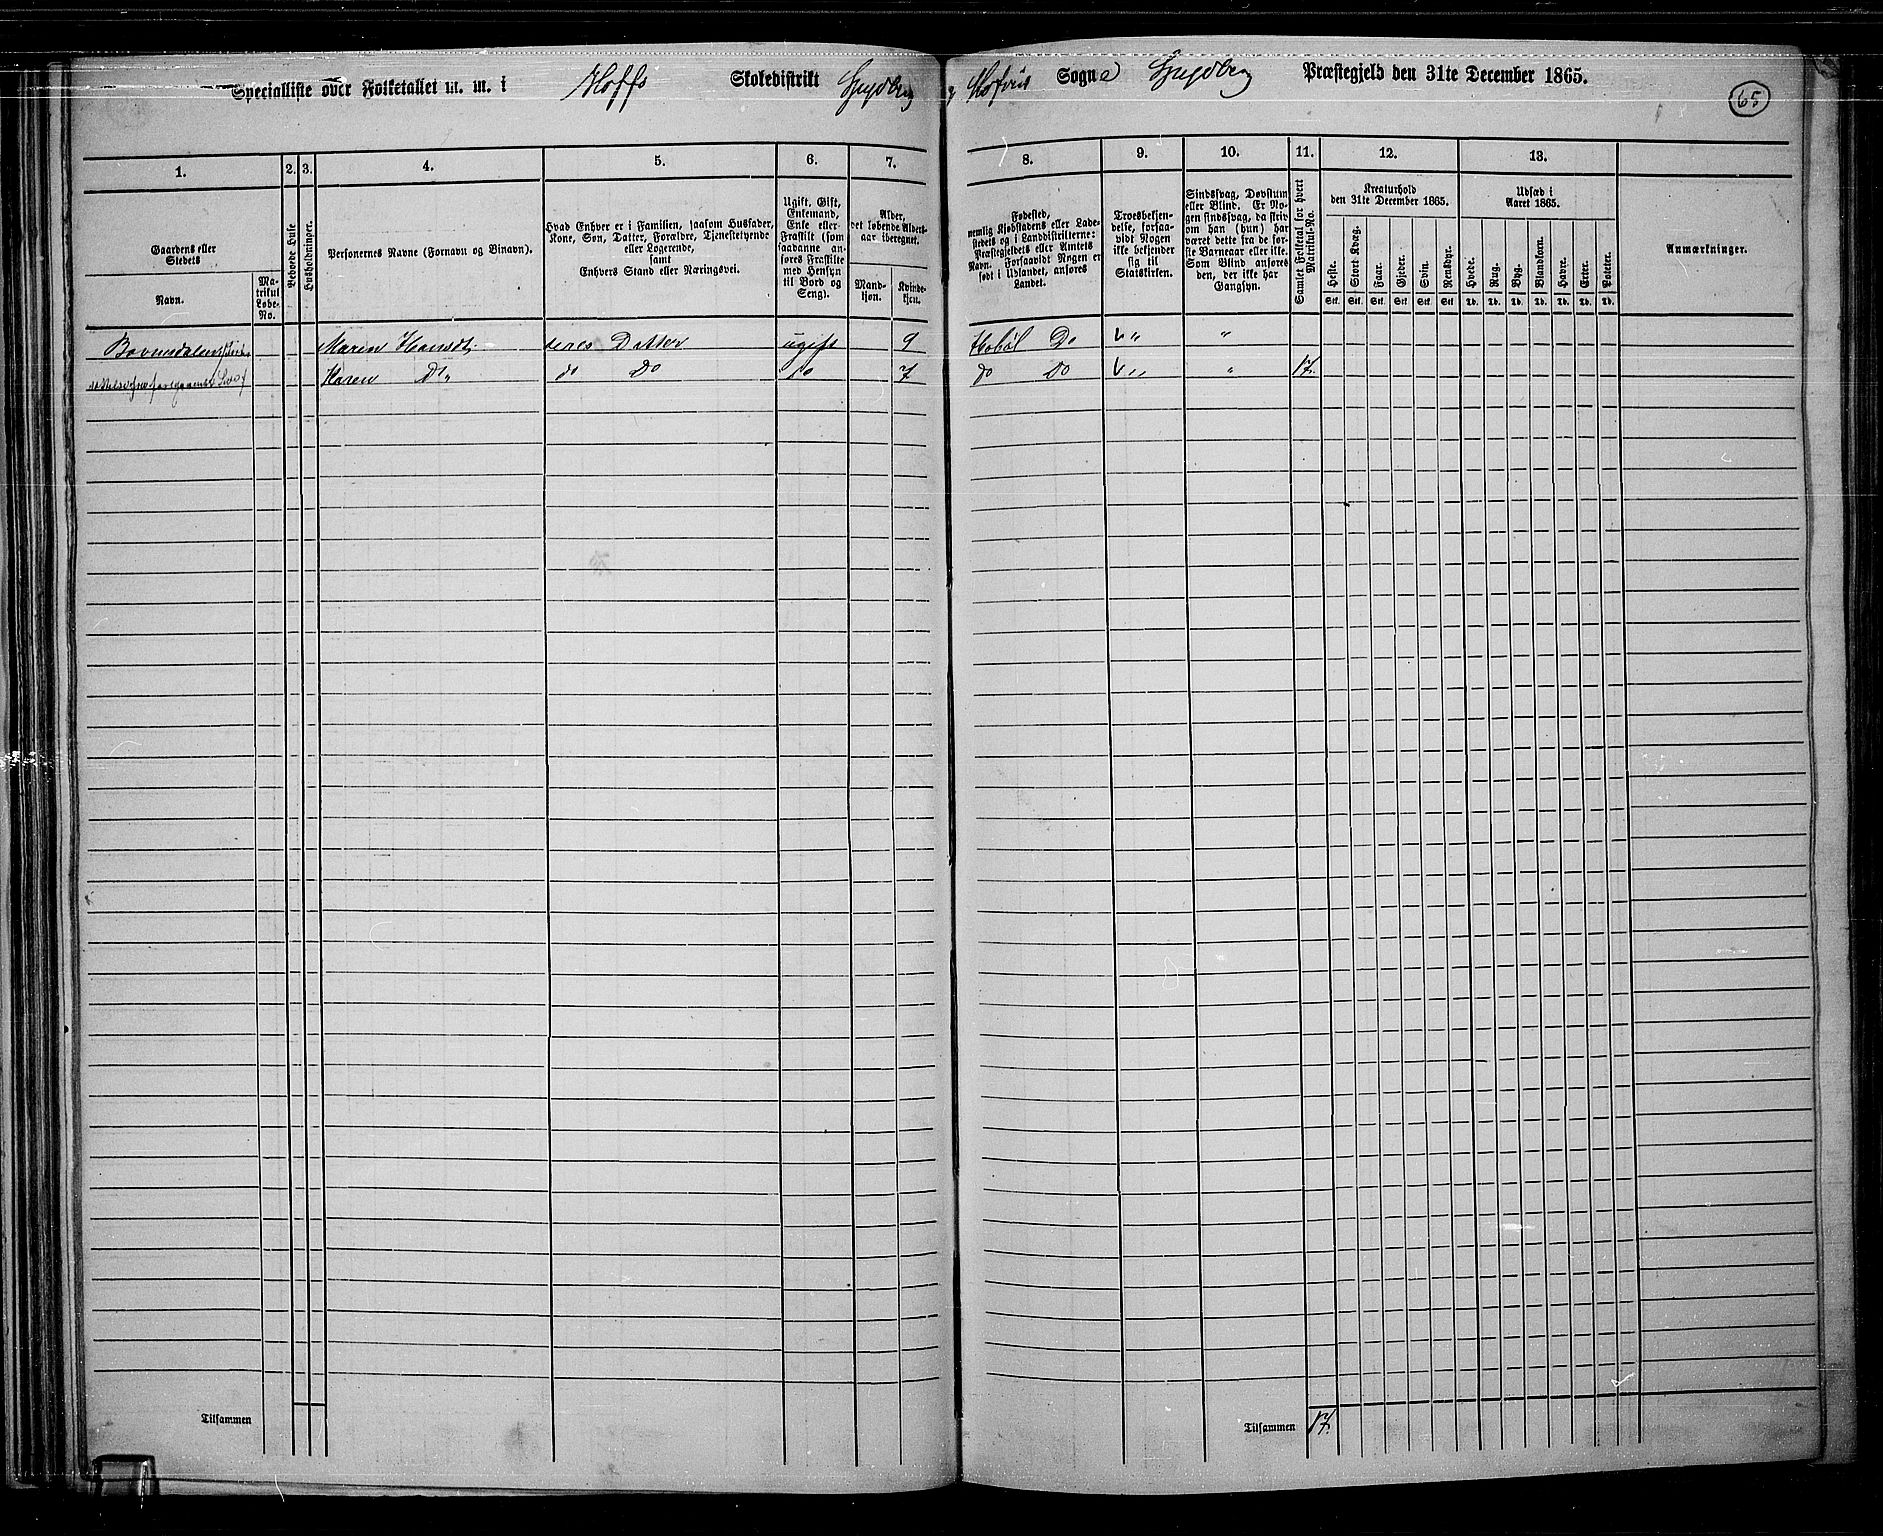 Specialliste over Folketallet m. m. i Hoffs Skoledistrikt Spydberg og Hofvin Sogne Spydberg Præstegjeld den 31te December 1865.
65
1. 2. 3. 4. 5. 6. 7. 8. 9. 10. 11. 12. 13.
Gaardens eller Stedets
Navn.
Matrikul Løbe-No.
Beboede Huse
Husholdninger.
Personernes Navne (Fornavn og Binavn).
Hvad Enhver er i Familien, saasom Husfader, Kone, Søn, Datter, Forældre, Tjenestetyende eller Logerende,
samt
Enhvers Stand eller Næringsvei.
Ugift, Gift, Enkemand, Enke eller Fraskilt (som saadanne anføres Fraskilte med Hensyn til Bord og Seng).
Alder, det løbende Alders-aar iberegnet.
Mand-kjøn.
Kvinde-kjøn.
Fødested, nemlig Kjøbstadens eller Ladestedets og i Landdistrikterne: Præstegjeldets eller Amtets Navn. Forsaavidt Nogen er født i Udlandet, anføres Landet.
Troesbekjendelse, forsaavidt Nogen ikke bekjender sig til Statskirken.
Sindssvag, Døvstum eller Blind. Er Nogen sindssvag, da skriv om han (hun) har været dette fra de første Barneaar eller ikke. Som Blind anføres den, der ikke har Gangsyn.
Samlet Folketal for hvert Matrikul-No.
Kreaturhold den 31te December 1865.
Heste. Stort Kvæg. Faar. Gjeder. Svin. Rensdyr.
Stk. Stk. Stk. Stk. Stk. Stk.
Udsæd i Aaret 1865.
Hvede. Rug. Byg. Blandkorn. Havre. Erter. Poteter.
Td. Td. Td. Td. Td. Td. Td.
Anmærkninger.
Maren Hansdt. deres Datter ugift 9 Hobøl Do " "
Karen Do " do Do do 7 do Do " " 17.
Tilsammen
Tilsammen 17.